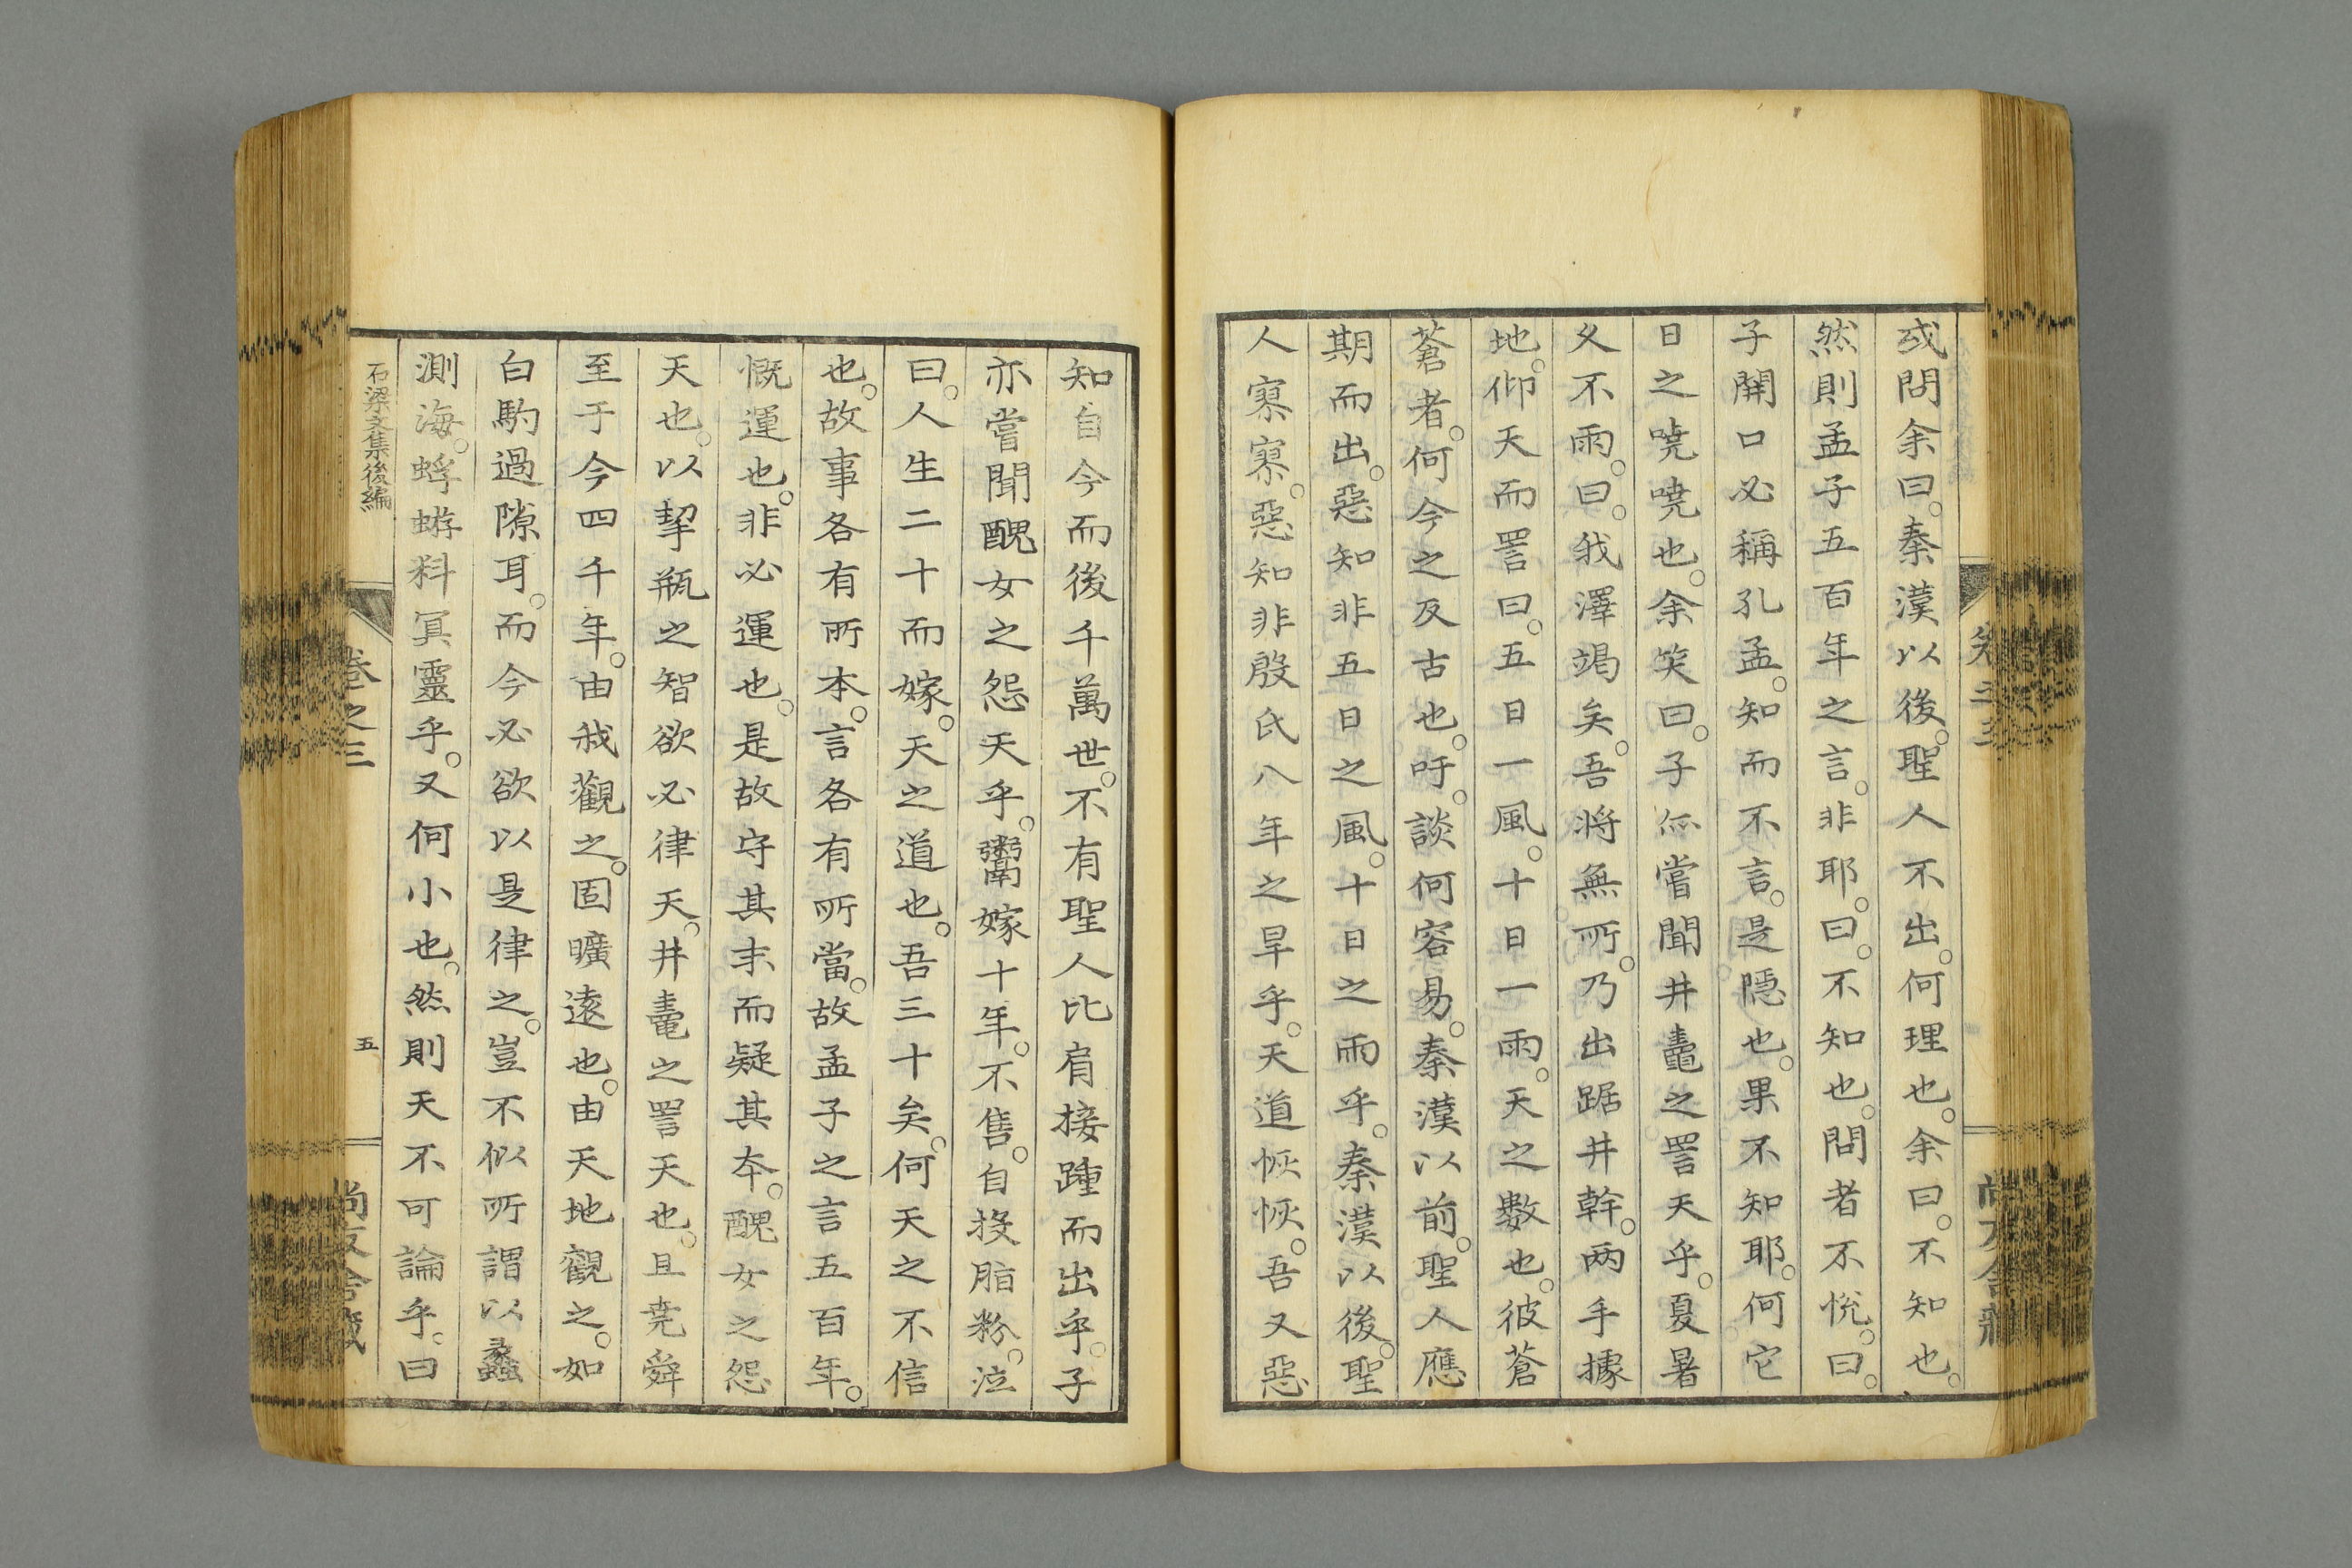 或問余曰。秦漢以後。聖人不出。何理也。余曰。不知也。
然則孟子五百年之言。非耶。曰。不知也。問者不悅。曰。
子開口必稱孔孟。知而不言。是隱也。果不知耶。何它
日之嘵嘵也。余笑曰。子尒嘗聞井鼃之詈天乎。夏暑
久不雨。曰。我澤竭矣。吾將無所。乃出踞井幹。两手據
地。仰天而詈曰。五日一風。十日一雨。天之數也。彼蒼
蒼者。何今之反古也。吁。談何容易。秦漢以前。聖人應
期而出。惡知非五日之風。十日之雨乎。秦漢以後。聖
人寥寥。惡知非殷氏八年之旱乎。天道恢恢。吾又惡
知自今而後千萬世。不有聖人比肩接踵而出乎。子
亦嘗聞醜女之怨天乎。鬻嫁十年。不售。自投脂粉。泣
曰。人生二十而嫁。天之道也。吾三十矣。何天之不信
也。故事各有所本。言各有所當。故孟子之言五百年。
慨運也。非必運也。是故守其末而疑其本。醜女之怨
天也。以挈瓶之智欲必律天。井鼃之詈天也。且堯舜
至于今四千年。由我觀之。固曠遠也。由天地觀之。如
白駒過隙耳。而今必欲以是律之。豈不似所謂以蠡
測海。蜉蝣料冥靈乎。又何小也。然則天不可論乎。曰
石梁文集後編
卷之三
五